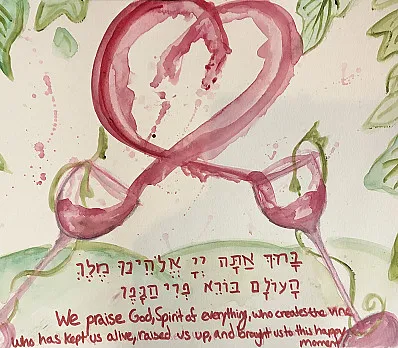 בָּרוּךְ אַתָּה יְיָ אֱלֹהֵינוּ מֶלֶךְ
הָעוֹלָם בּוֹרֵא פְּרִי הַגָּפֶן
We praise God, Spirit of everything, who creates the vine,
who has kept us alive, raised us up, and brought us to this happy
moment